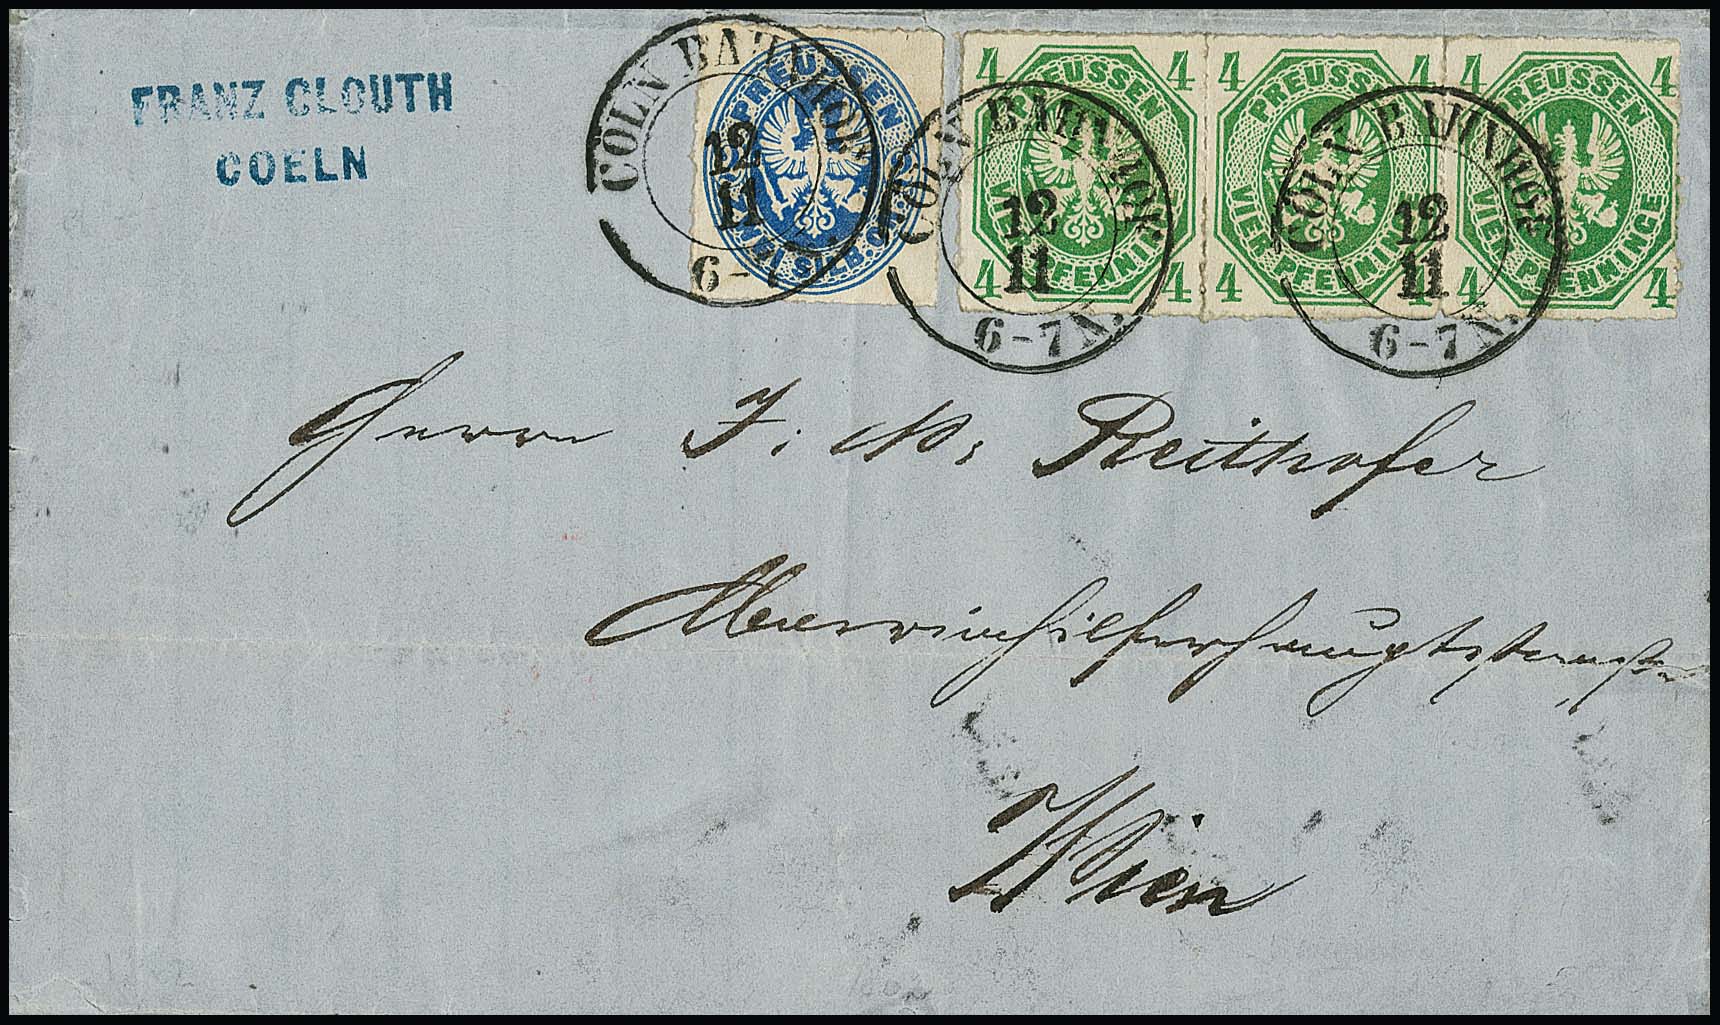 FRANZ CLOUTH
COELN
PREUSSEN
ZWEI SILB. GR.
4 PREUSSEN 4
4 VIER PFENNINGE 4
4 PREUSSEN 4
4 VIER PFENNINGE 4
4 PREUSSEN 4
4 VIER PFENNINGE 4
CÖLN BAHNHOF
12
11
6-7
CÖLN BAHNHOF
12
11
6-7 N.
CÖLN BAHNHOF
12
11
6-7 N.
Herrn J. N. Reithofer
Mariahilferhauptstrasse
Wien